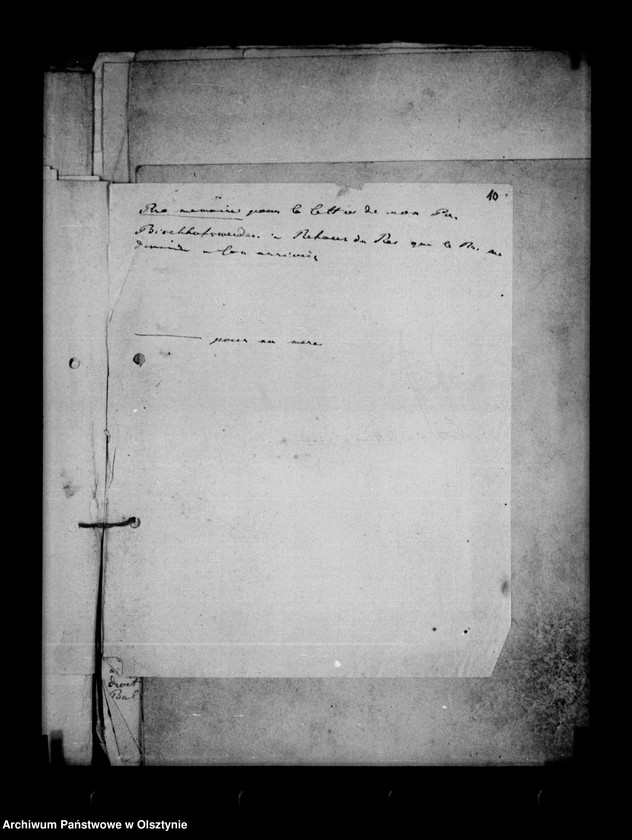 10
Pro memoire pour la lettre de mon
Bischhofswerder. Retour du que le me
demande son arrivée
pour ma mere
droit
Paul
Archiwum Państwowe w Olsztynie